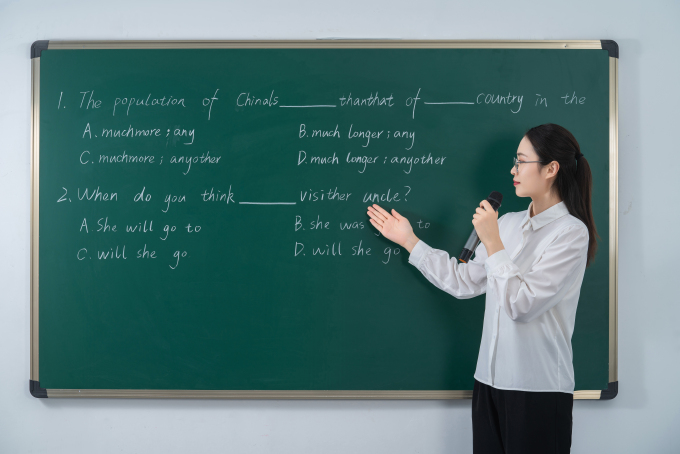 1. The population of Chinals______thanthat of______country in the
A. muchmore ; any B. much longer ; any
C. muchmore ; anyother D. much longer ; anyother
2. When do you think______visither uncle?
A. She will go to B. she was to
C. will she go D. will she go